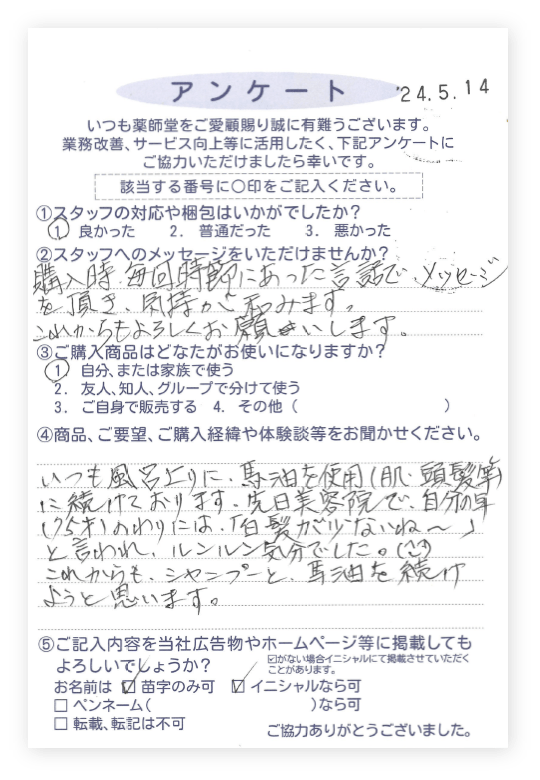 アンケート
'24.5.14
いつも薬師堂をご愛顧賜り誠に有難うございます。
業務改善、サービス向上等に活用したく、下記アンケートに
ご協力いただけましたら幸いです。
該当する番号に〇印をご記入ください。
①スタッフの対応や梱包はいかがでしたか?
1. 良かった 2. 普通だった 3. 悪かった
②スタッフへのメッセージをいただけませんか?
購入時、毎回時節にあった言話で、メッセージ
を頂き、気持が和みます。
これからもよろしくお願いします。
③ご購入商品はどなたがお使いになりますか?
1. 自分、または家族で使う
2. 友人、知人、グループで分けて使う
3. ご自身で販売する 4. その他( )
④商品、ご要望、ご購入経緯や体験談等をお聞かせください。
いつも風呂上りに、馬油を使用(肌・頭髪等)
に続けております。先日美容院で、自分の年
(75才)のわりには、「白髪が少ないね～」
と言われ、ルンルン気分でした。
これからも、シャンプーと、馬油を続け
ようと思います。
⑤ご記入内容を当社広告物やホームページ等に掲載しても
よろしいでしょうか?
☑がない場合イニシャルにて掲載させていただく
ことがあります。
お名前は ☑ 苗字のみ可 ☑ イニシャルなら可
□ ペンネーム( )なら可
□ 転載、転記は不可
ご協力ありがとうございました。